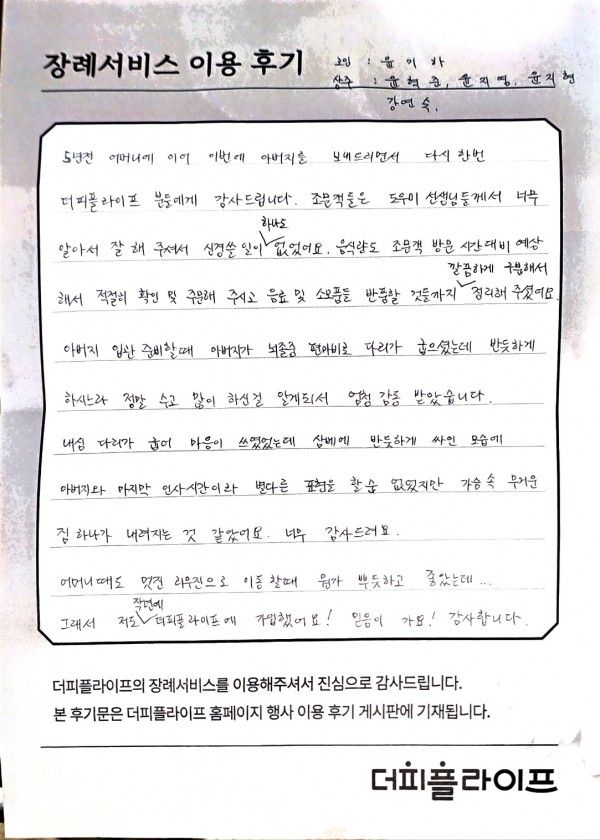 장례서비스 이용 후기
고인 : 윤이바
상주 : 윤혁준, 윤지영. 윤지현
강연숙.
5년전 어머니에 이어 이번에 아버지를 보내드리면서 다시 한번
더피플라이프 분들에게 감사드립니다. 조문객들은 도우미 선생님들께서 너무
알아서 잘 해 주셔서 신경쓸 일이 하나도 없었어요. 음식량도 조문객 방문 시간대비 예상
해서 적절히 확인 및 주문해 주시고 음료 및 소모품들 반품할 것들까지 깔끔하게 구분해서 정리해 주셨어요.
아버지 입관 준비할때 아버지가 뇌졸중 편마비로 다리가 굽으셨는데 반듯하게
하시느라 정말 수고 많이 하신걸 알게되서 엄청 감동 받았습니다.
내심 다리가 굽어 마음이 쓰였었는데 삼베에 반듯하게 싸인 모습에
아버지와 마지막 인사시간이라 별다른 표현을 할 수 없었지만 가슴 속 무거운
짐 하나가 내려지는 것 같았어요. 너무 감사드려요.
어머니때도 멋진 리무진으로 이동할때 뭔가 뿌듯하고 좋았는데...
그래서 저도 작년에 더피플라이프에 가입했어요! 믿음이 가요! 감사합니다.
더피플라이프의 장례서비스를 이용해주셔서 진심으로 감사드립니다.
본 후기문은 더피플라이프 홈페이지 행사 이용 후기 게시판에 기재됩니다.
더피플라이프